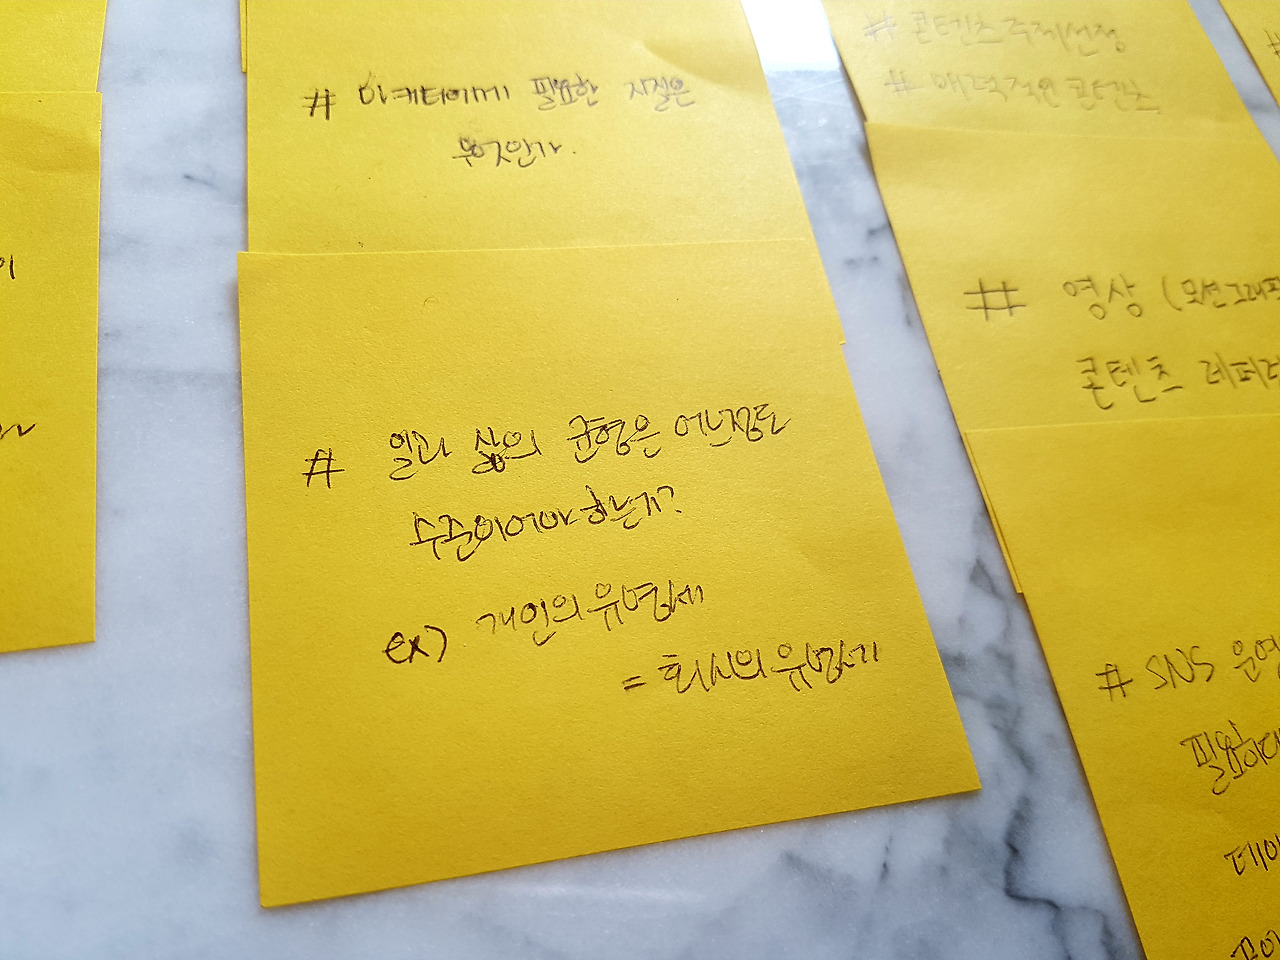 # 마케터에게 필요한 자질은
무엇인가.
# 일과 삶의 균형은 어느정도
수준이어야 하는지?
ex) 개인의 유명세
= 회사의 유명세
# 콘텐츠 주제선정
# 매력적인 콘텐츠
# 영상 (모션그래픽
콘텐츠 레퍼
# SNS 운영
필요
데이